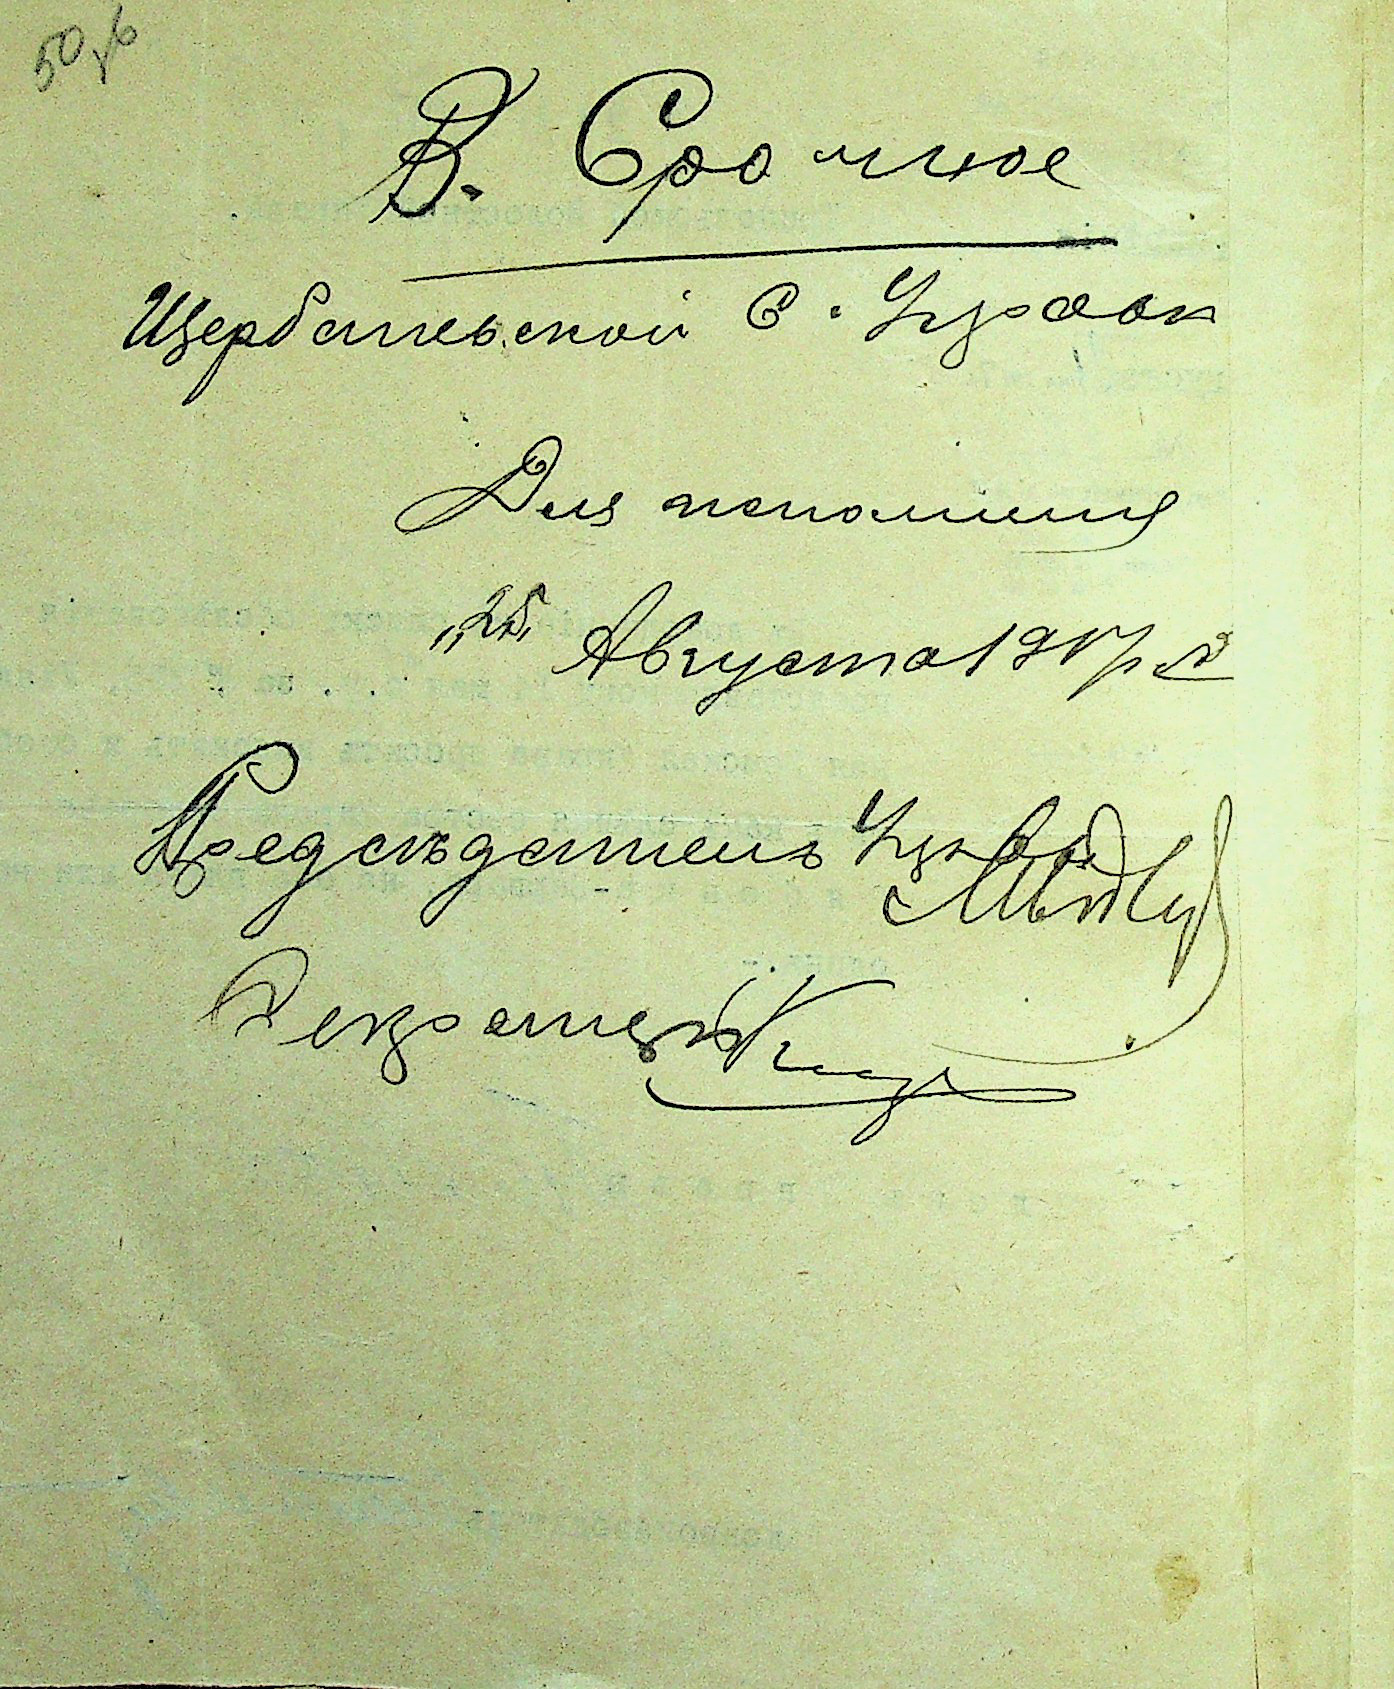 50 об
В. Срочное
Щербатьевской С. Управ
Для исполнения
"25" Августа 1917 г. №
Председатель Управы
Секретарь